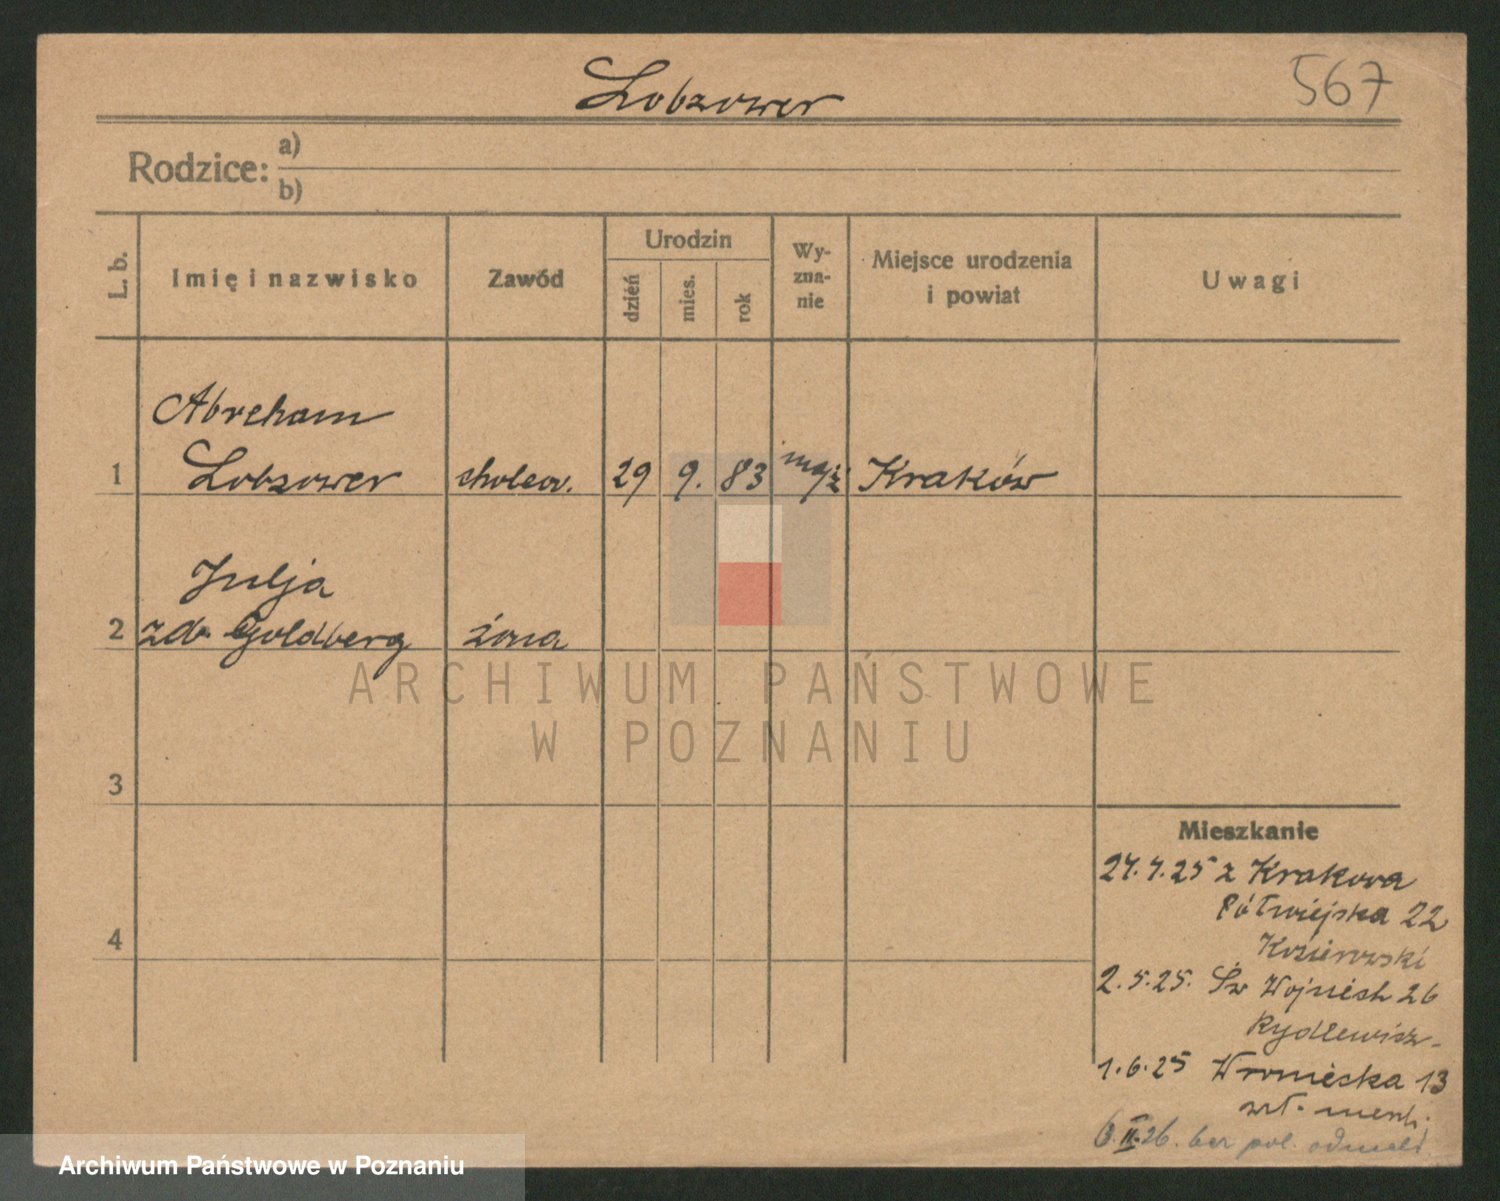 Lobzower
567
Rodzice:
a)
b)
L. b.
Imię i nazwisko
Zawód
Urodzin
dzień
mies.
rok
Wy-
zna-
nie
Miejsce urodzenia
i powiat
Uwagi
Abraham
1 Lobzower cholew. 29 9. 83 mojż Kraków
Julja
2 zd. Goldberg żona
3
4
Mieszkanie
27.4.25 z Krakowa
Półwiejska 22
Kosierowski
2.5.25. Św Wojciech 26
Rydlewicz-
1.6.25 Wroniecka 13
wł.
6.II.26. bez pol. odmeld.
ARCHIWUM PAŃSTWOWE
W POZNANIU
Archiwum Państwowe w Poznaniu